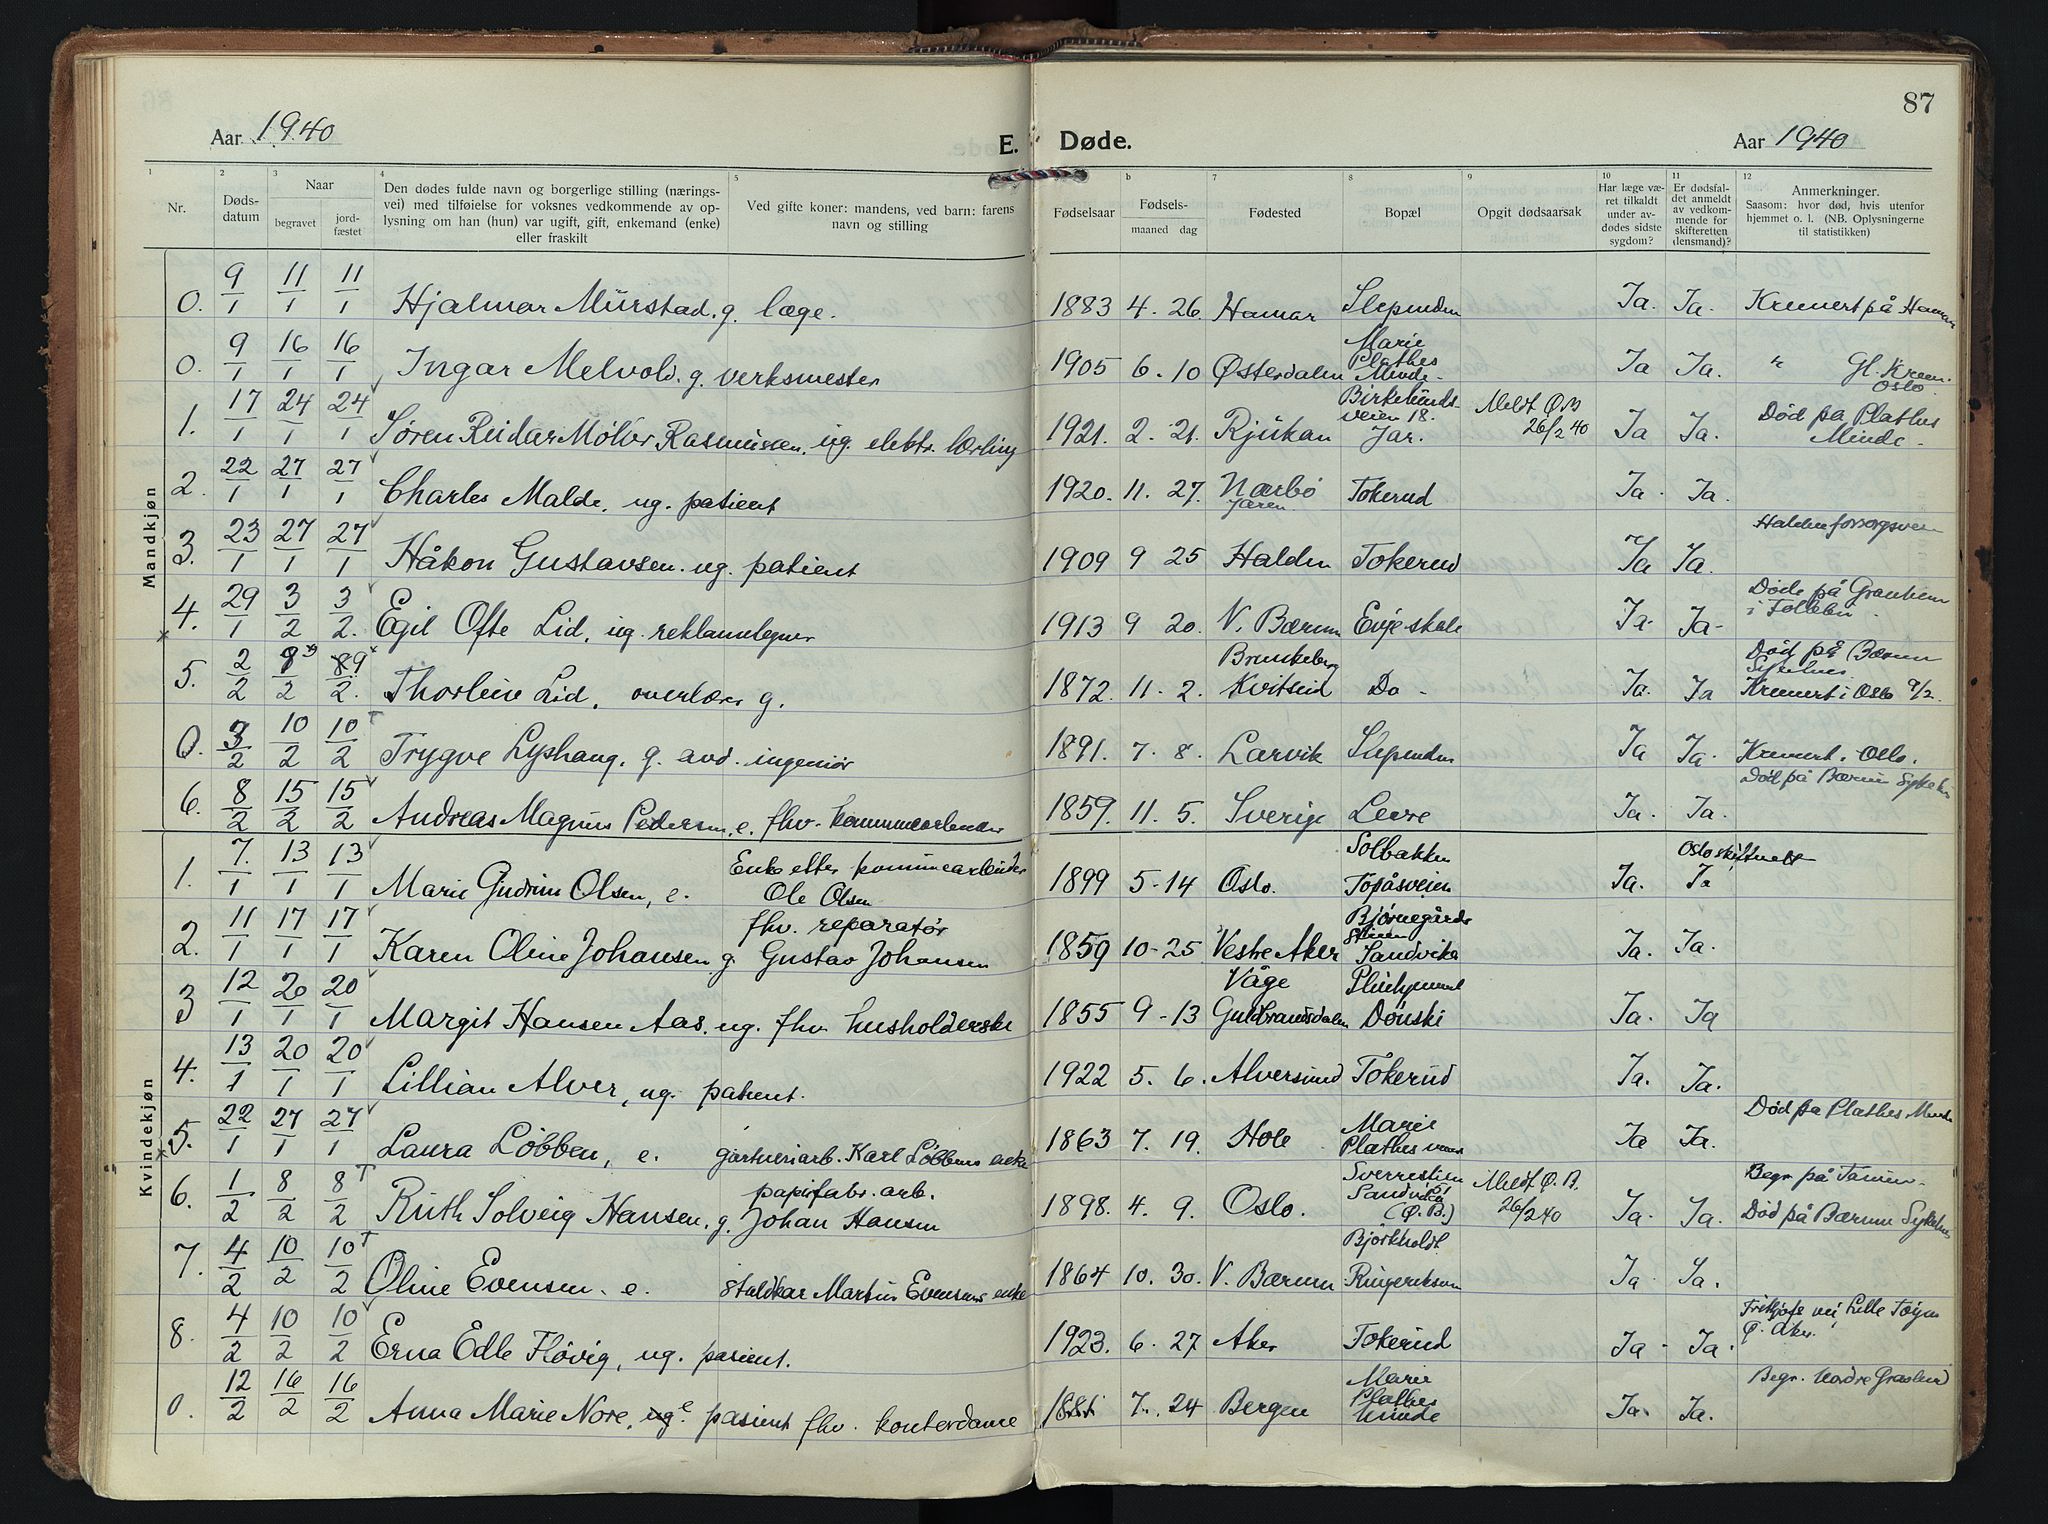 87
Aar 1940 E. Døde. Aar 1940
1 2 3 4 5 b 7 8 9 10 11 12
Nr. Døds-datum Naar begravet jord-fæstet
Den dødes fulde navn og borgerlige stilling (nærings-
vei) med tilføielse for voksnes vedkommende av op-
lysning om han (hun) var ugift, gift, enkemand (enke)
eller fraskilt
Ved gifte koner: mandens, ved barn: farens
navn og stilling
Fødselsaar
Fødsels-
maaned dag
Fødested
Bopæl
Opgit dødsaarsak
Har læge væ-
ret tilkaldt
under av-
dødes sidste
sygdom?
Er dødsfal-
det anmeldt
av vedkom-
mende for
skifteretten
(lensmand)?
Anmerkninger.
Saasom: hvor død, hvis utenfor
hjemmet o. l. (NB. Oplysningerne
til statistikken)
Mandkjøn
0. 9/1 11/1 11/1 Hjalmar Mürstad. g. læge. 1883 4. 26. Hamar Slependen Ja. Ja. Kremert på Hamar
0. 9/1 16/1 16/1 Ingar Melvold. g. verksmester 1905 6. 10 Østerdalen Marie Plathes Minde. Ja Ja. " Gl. Krem. Oslo
1. 17/1 24/1 24/1 Søren Reidar Møller Rasmussen, ug. elektr. lærling 1921. 2. 21. Rjukan Birkelunds-veien 18. Jar. Meldt Ø.B 26/2 40 Ja Ja. Død på Plathes Minde.
2. 22/1 27/1 27/1 Charles Malde, ug. patient 1920. 11. 27. Nærbø Jæren. Tokerud Ja. Ja.
3. 23/1 27/1 27/1 Håkon Gustavsen. ug. patient 1909 9 25 Halden Tokerud Ja Ja. Halden forsorgsvesen
4. 29/1 3/2 3/2. Egil Ofte Lid, ug. reklametegner 1913 9 20. V. Bærum Evje skole Ja. Ja. Døde på Granheim i Follebu.
5. 2/2 9/2 8 9/2. Thorleiv Lid, overlærer g. 1872. 11. 2. Brunkeberg Kviteseid Do. Ja. Ja Død på Bærum Sykehus Kremert i Oslo 9/2.
0. 3/2 10/2 10/2 Trygve Lyshaug, g. avd. ingeniør 1891. 7. 8. Larvik Slependen Ja Ja. Kremert i Oslo.
6. 8/2 15/2 15/2 Andreas Magnus Pedersen, e. fhv. kommunearbeider 1859. 11. 5. Sverige Levre Ja. Ja. Død på Bærum Sykehus
Kvindekjøn
1. 7./1 13/1 13/1 Marie Gudrun Olsen, e. Enke etter kommunearbeider Ole Olsen 1899 5-14 Oslo. Solbakken Topåsveien Ja. Oslo skifterett Ja
2. 11/1 17/1 17/1 Karen Oline Johansen g. fhv. reparatør Gustav Johansen 1859 10-25 Vestre Aker Bjørnegårds Sandvika Ja. Ja.
3 12/1 20/1 20/1 Margit Hansen Aas. ug. fhv. husholderske 1855 9-13 Våge Gudbrandsdalen Pleiehjemmet Dønski Ja. Ja
4. 13/1 20/1 20/1 Lillian Alver, ug. patient. 1922 5. 6. Alversund Tokerud Ja. Ja.
5. 22/1 27/1 27/1 Laura Løbben, e. gartneriarb. Karl Løbbens enke 1863 7. 19. Hole Marie Plathes minde Ja Ja. Død på Plathes Minde
6. 1/2 8/2 8/2 Ruth Solveig Hansen. g. papirfabr. arb. Johan Hansen 1898. 4. 9. Oslo. Sverrestien Sandvika (Ø.B.) Meldt Ø.B. 26/2 40 Ja. Ja. Begr. på Tanum. Død på Bærum Sykehus
7. 4/2 10/2 10/2 Oline Evensen. e. staldkar Martin Evensens enke 1864 10. 30. V. Bærum Bjørkholdt Ringeriksveien Ja. Ja.
8. 4/2 10/2 10/2 Erna Edle Fløvig, ug. pasient. 1923. 6. 27 Aker Tokerud Ja. Ja. Lille Tøyen Ø. Aker.
0. 12/2 16/2 16/2 Anna Marie Nore, ug. e pasient fhv. kontordame 1881 7. 24 Bergen Marie Plathes Minde Ja. Ja. Begr. Nordre Gravlund